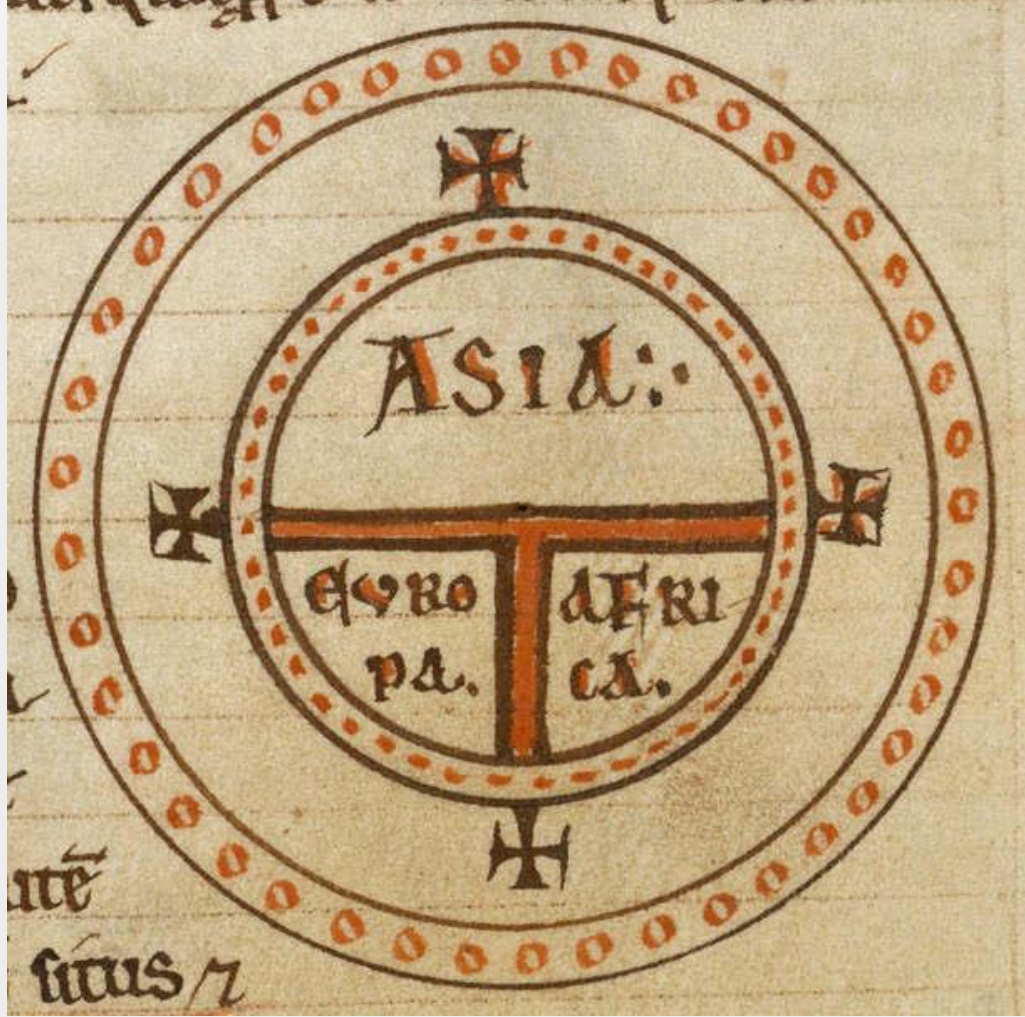 ASIA:·
EVRO
PA.
AFRI
CA.
situs ⁊